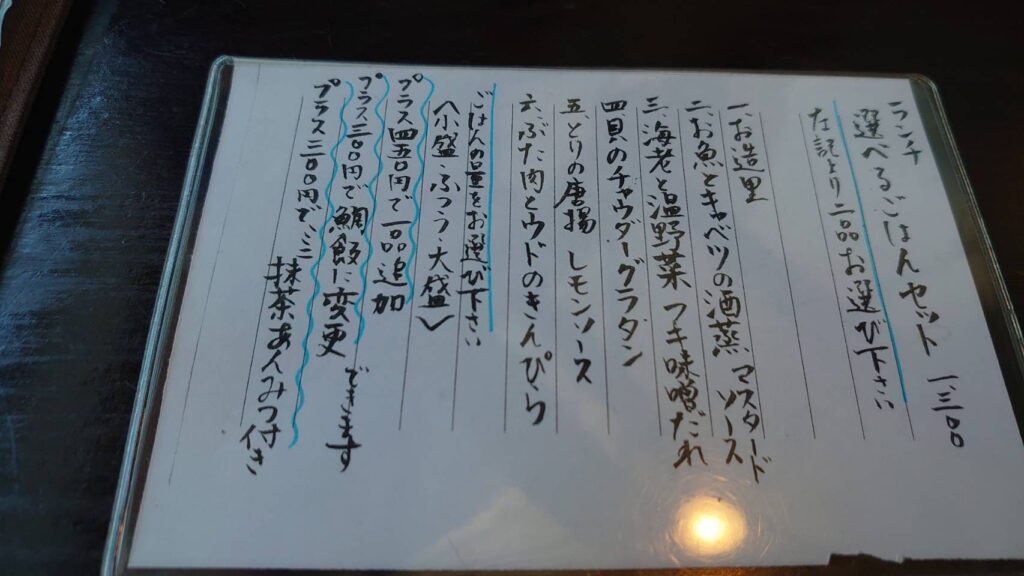 ランチ
選べるごはんセット 一、三〇〇
左記より二品お選び下さい
一、お造里
二、お魚とキャベツの酒蒸 マスタードソース
三、海老と温野菜 フキ味噌だれ
四、貝のチャウダーグラタン
五、とりの唐揚 レモンソース
六、ぶた肉とウドのきんぴら
ごはんの量をお選び下さい
〈小盛・ふつう・大盛〉
プラス四五〇円で一品追加
プラス三〇〇円で鯛飯に変更 できます
プラス三〇〇円でミニ抹茶あんみつ付き